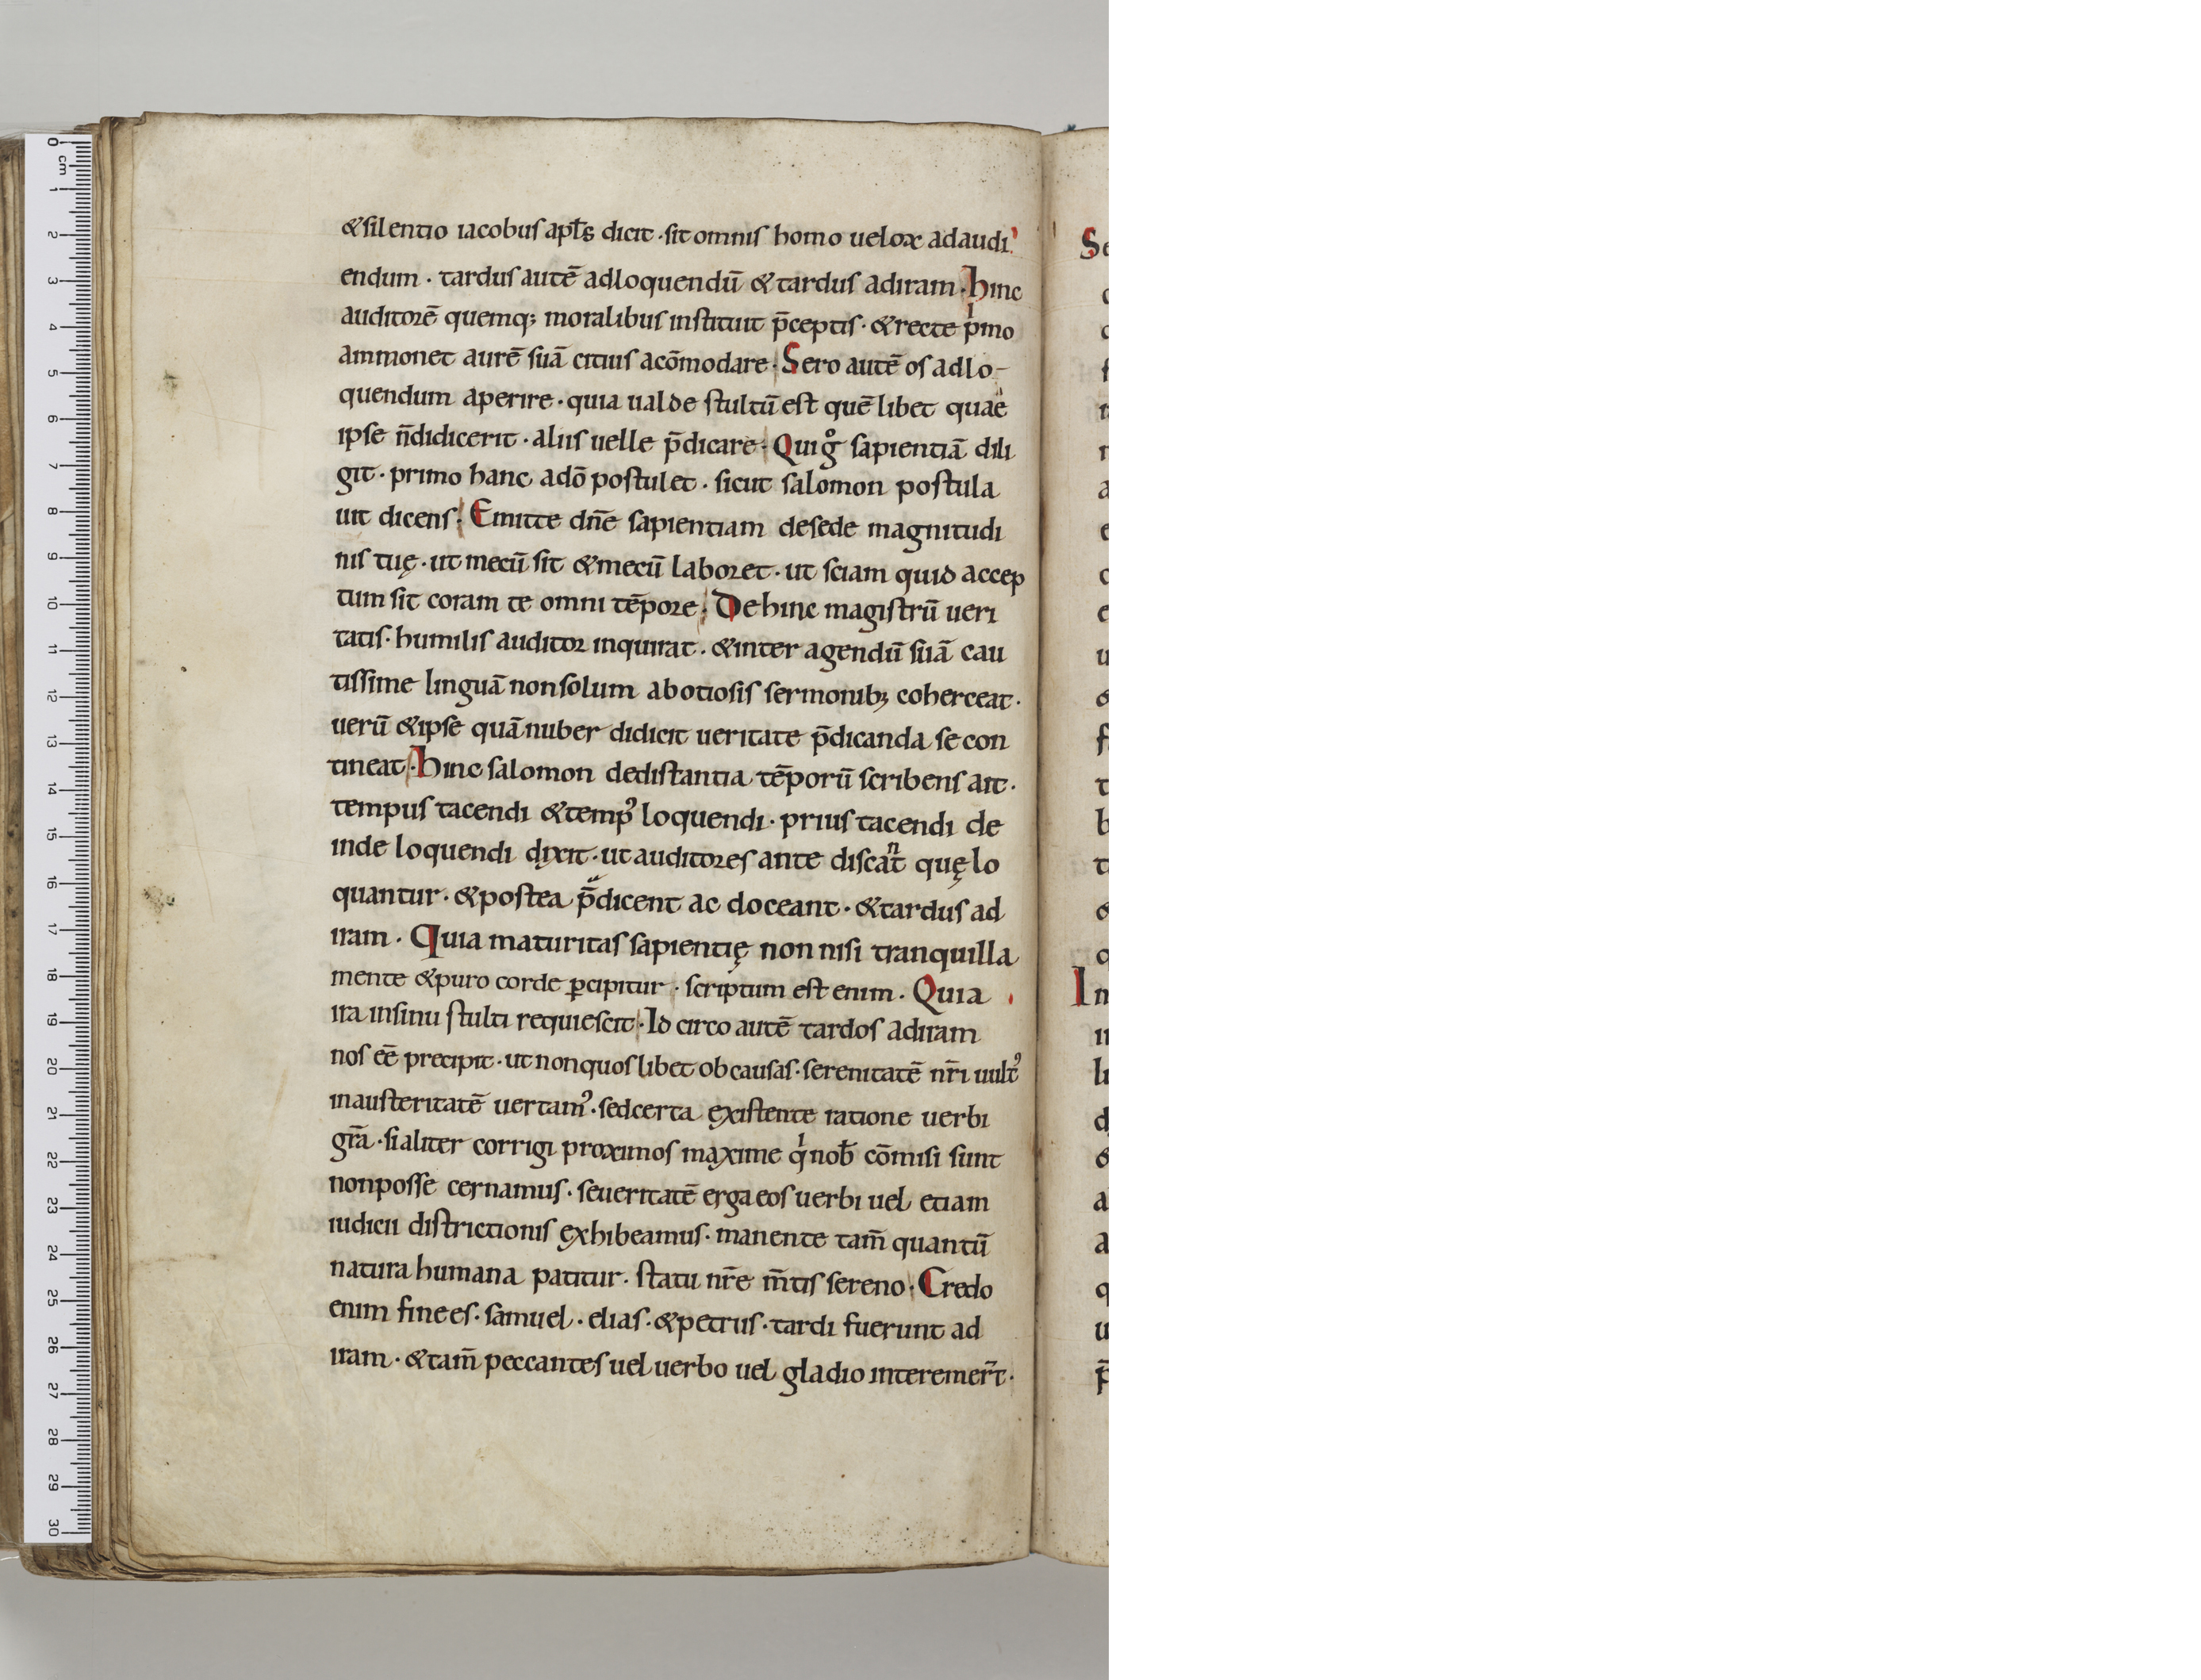 &silentio iacobus apłs dicit · sit omnis homo uelox adaudi
endum · tardus autē adloquendū &tardus adiram · hinc
auditorē quemq; moralibus instituit p̄ceptis · &recte pͥmo
ammonet aurē suā citius acōmodare · Sero autē os adlo-
quendum aperire · quia ualde stultū est quē libet quae
ipse n̄didicerit · aliis uelle p̄dicare · Qui gͦ sapientiā dili
git · primo hanc adō postulet · sicut salomon postula
uit dicens · Emitte dn̄e sapientiam desede magnitudi
nis tuę · ut mecū sit &mecū laboret · ut sciam quid accep
tum sit coram te omni tēpore · Dehinc magistrū ueri
tatis · humilis auditor inquirat · &inter agendū suā cau
tissime linguā nonsolum abotiosis sermonib; coherceat ·
uerū &ipse quā nuber didicit ueritate p̄dicanda se con
tineat · hinc salomon dedistantia tēporū scribens ait ·
tempus tacendi &temp᾽ loquendi · prius tacendi de
inde loquendi dixit · ut auditores ante discaⁿt quę lo
quantur · &postea p̄dicent ac doceant · &tardus ad
iram · Quia maturitas sapientię non nisi tranquilla
mente &puro corde ꝑcipitur · scriptum est enim · Quia
ira insinu stulti requiescit · Id circo autē tardos adiram
nos eē precipit · ut nonquoslibet ob causas · serenitatē nr̄i uult᾽
inausteritatē uertam᾽ · sedcerta existente ratione uerbi
gr̄a · sialiter corrigi proximos maxime qͥ nob̄ cōmisi sunt
nonposse cernamus · seueritatē ergaeos uerbi uel etiam
iudicii districtionis exhibeamus · manente tam̄ quantū
natura humana patitur · statu nr̄e m̄tis sereno · Credo
enim finees · samuel · elias · &petrus · tardi fuerunt ad
iram · &tam̄ peccantes uel uerbo uel gladio interemer̄t ·